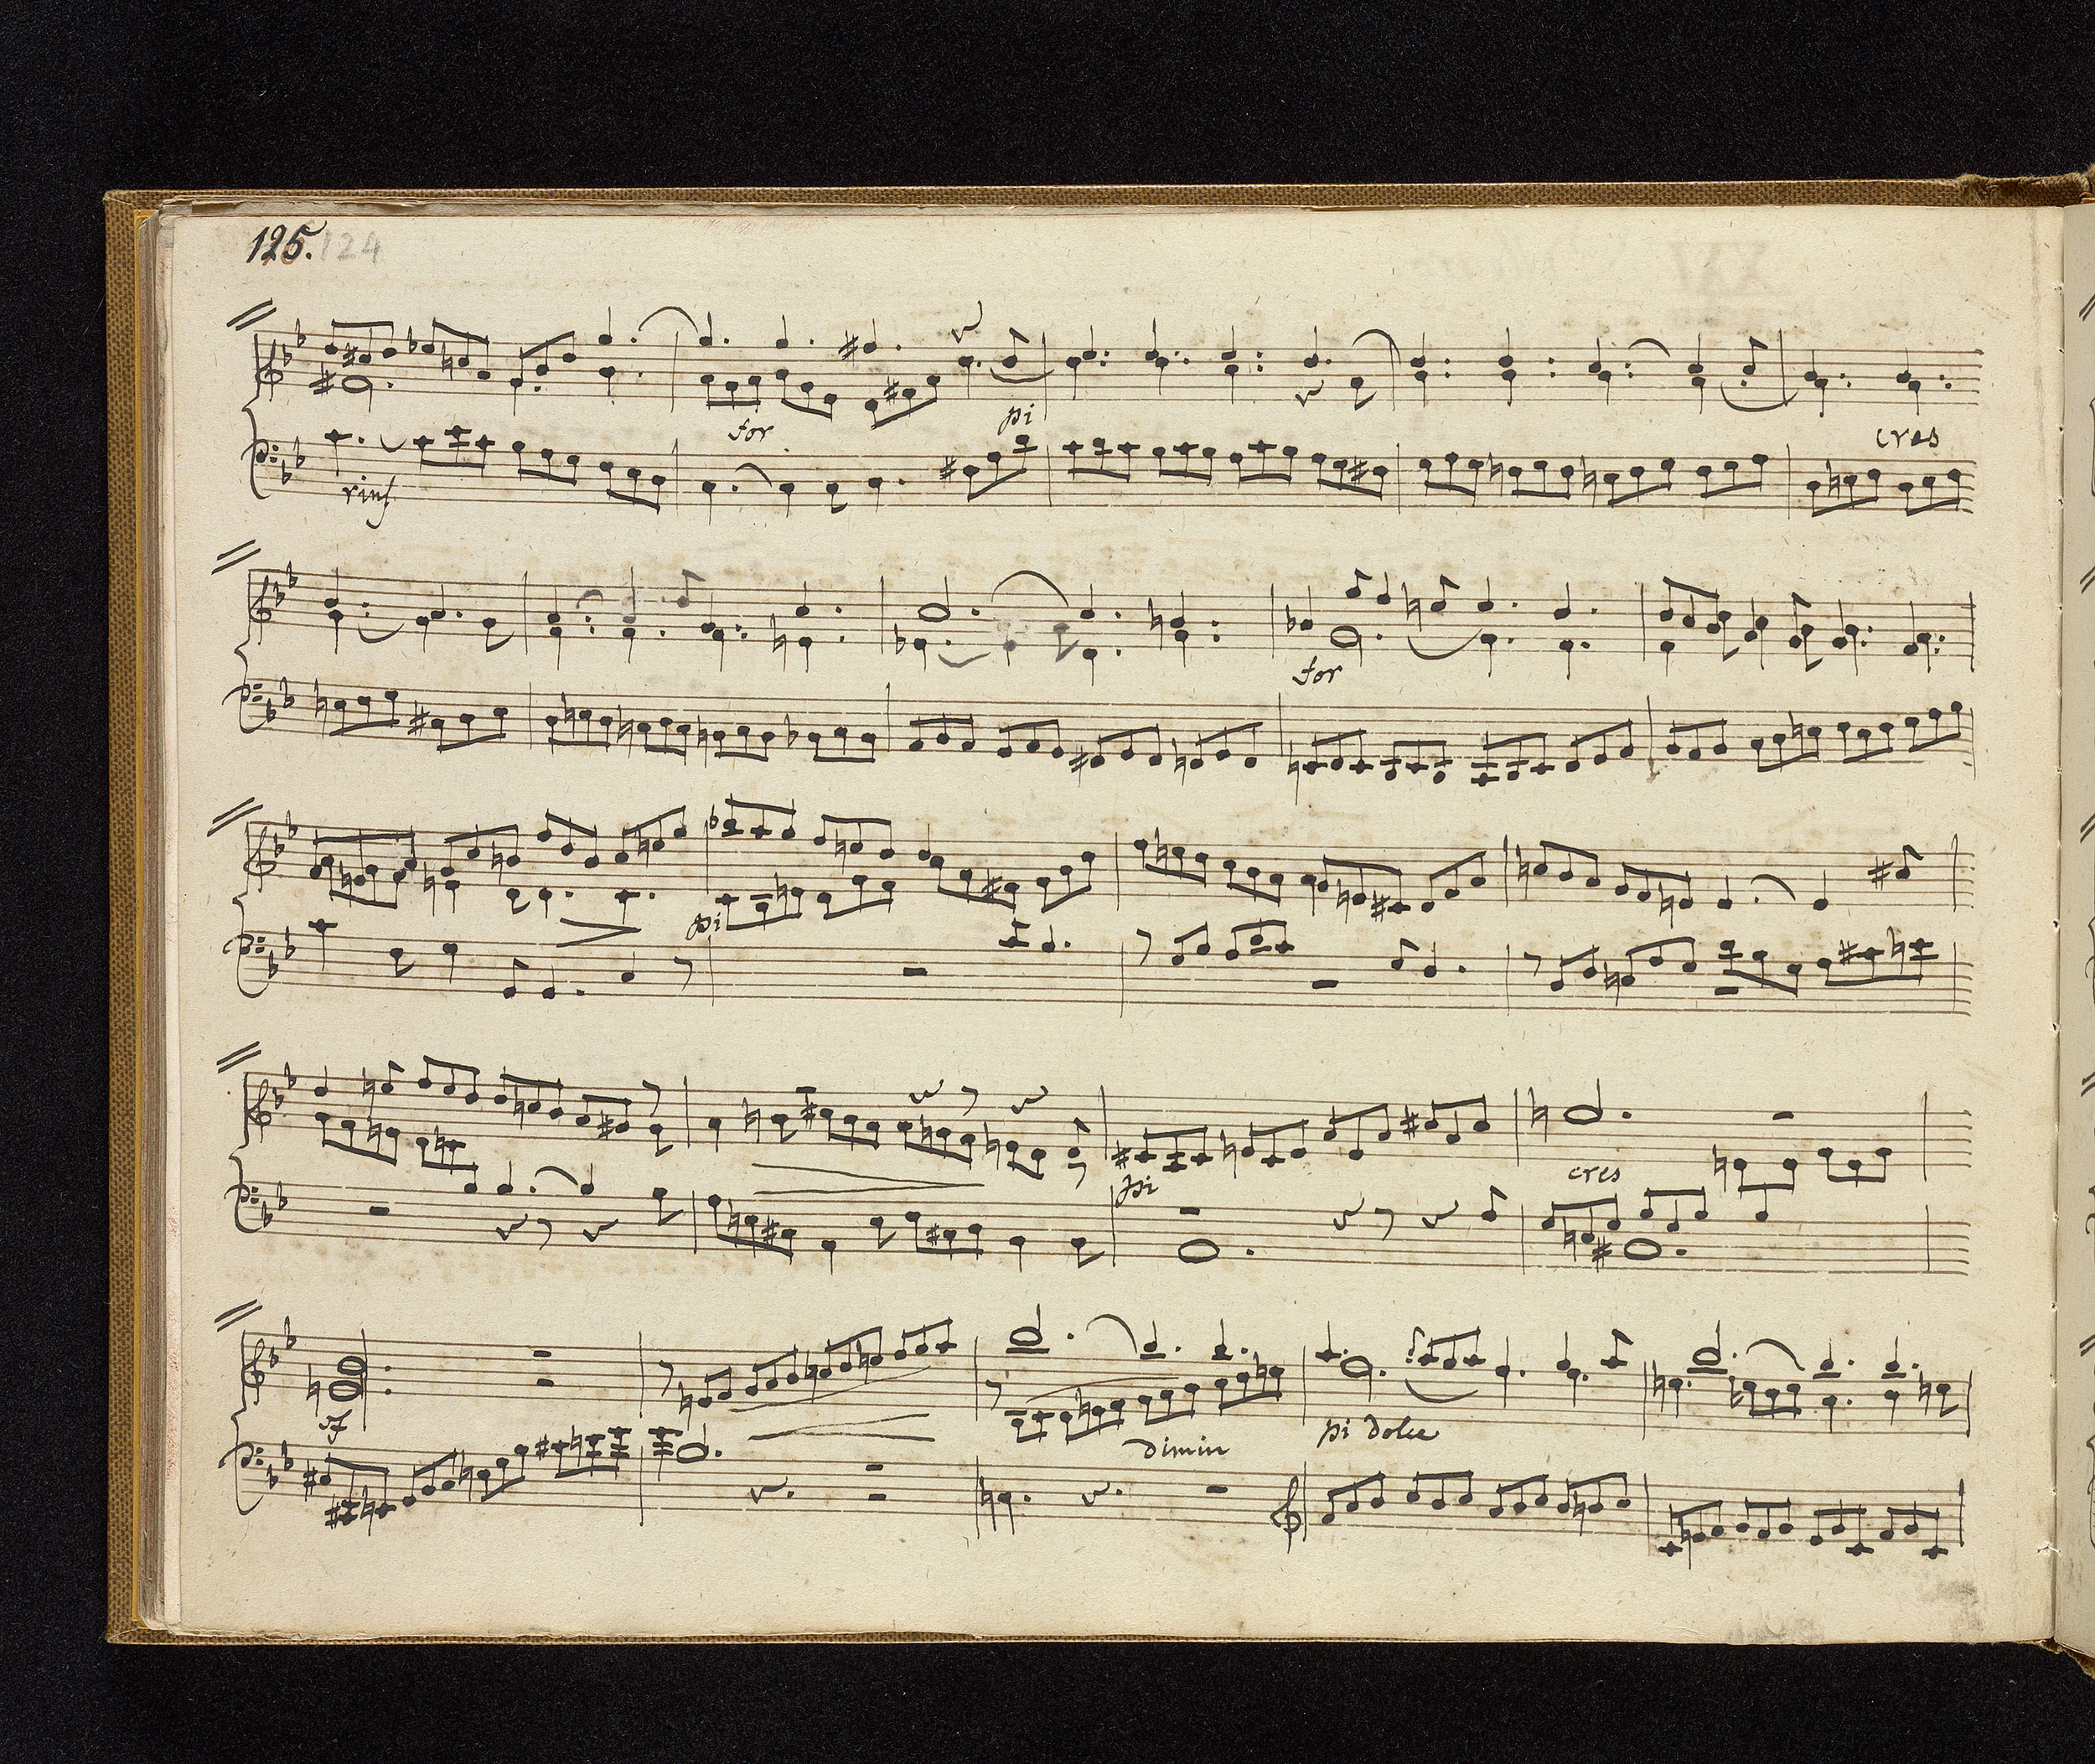 125. 124
for
pi
cres
rinf
for
pi
pi
cres
sf
dimin
pi dolce